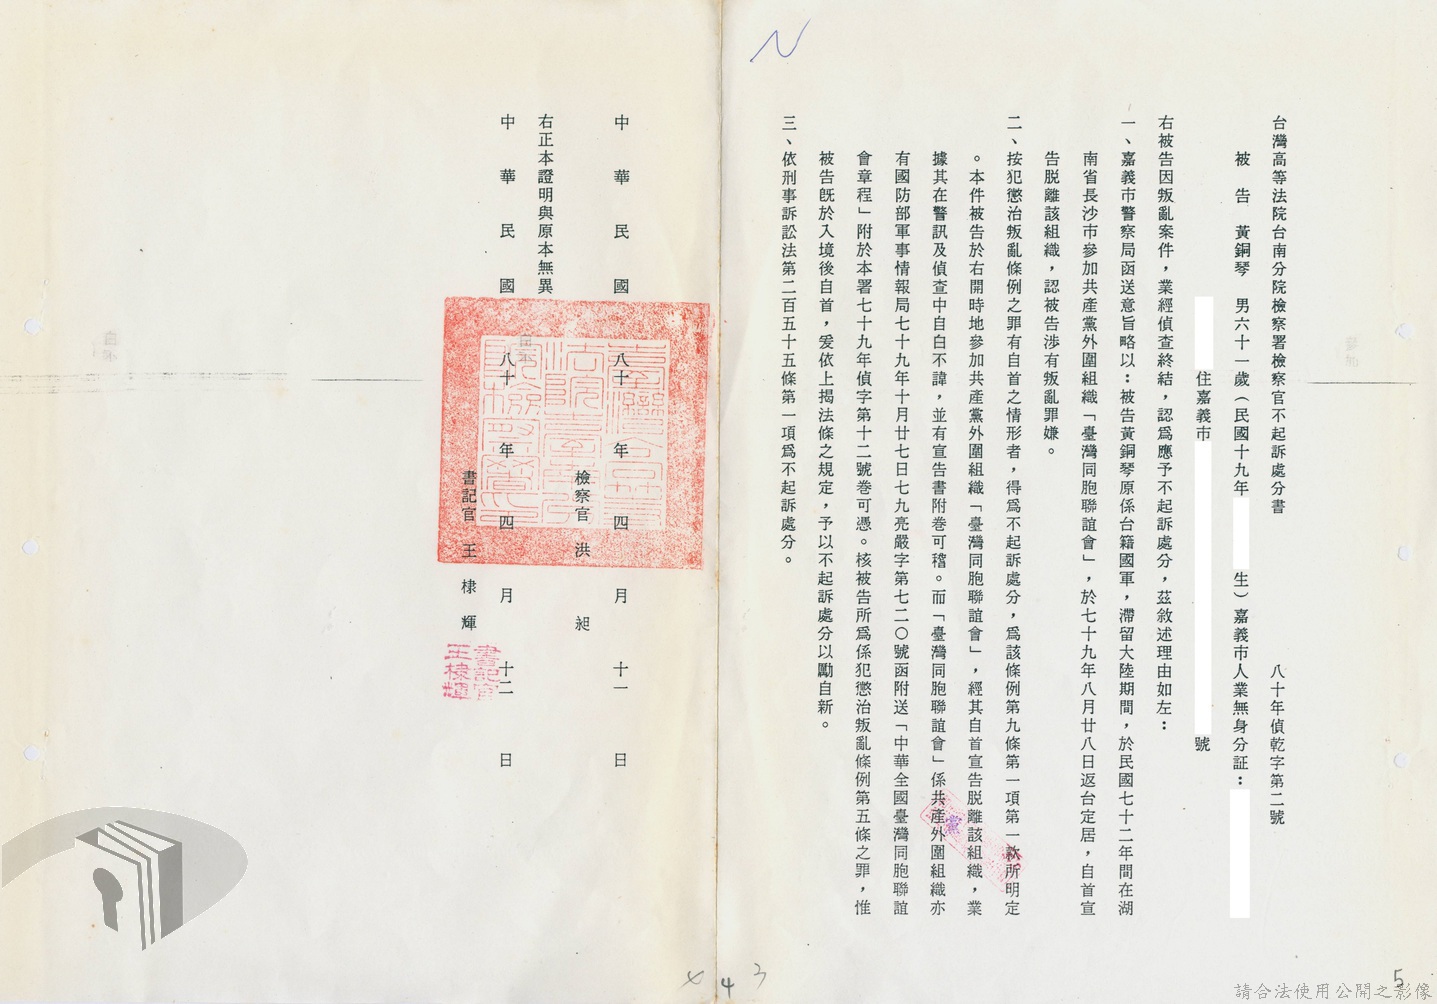 台灣高等法院台南分院檢察署檢察官不起訴處分書
八十年偵乾字第二號
被告 黃銅琴 男六十一歲（民國十九年
生）嘉義市人業無身分証：
住嘉義市
號
右被告因叛亂案件，業經偵查終結，認爲應予不起訴處分，茲敘述理由如左：
一、嘉義市警察局函送意旨略以：被告黃銅琴原係台籍國軍，滯留大陸期間，於民國七十二年間在湖
南省長沙市參加共產黨外圍組織「臺灣同胞聯誼會」，於七十九年八月廿八日返台定居，自首宣
告脫離該組織，認被告涉有叛亂罪嫌。
二、按犯懲治叛亂條例之罪有自首之情形者，得爲不起訴處分，爲該條例第九條第一項第一款所明定
。本件被告於右開時地參加共產黨外圍組織「臺灣同胞聯誼會」，經其自首宣告脫離該組織，業
據其在警訊及偵查中自白不諱，並有宣告書附卷可稽。而「臺灣同胞聯誼會」係共產外圍組織亦
黨
有國防部軍事情報局七十九年十月廿七日七九亮嚴字第七二〇號函附送「中華全國臺灣同胞聯誼
會章程」附於本署七十九年偵字第十二號卷可憑。核被告所爲係犯懲治叛亂條例第五條之罪，惟
被告既於入境後自首，爰依上揭法條之規定，予以不起訴處分以勵自新。
三、依刑事訴訟法第二百五十五條第一項爲不起訴處分。
中華民國八十年四月十一日
檢察官 洪 昶
右正本證明與原本無異
中華民國八十年四月十二日
書記官 王棣輝
書記官
王棣輝
5
3
4
請合法使用公開之影像